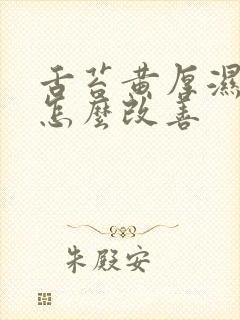 舌苔黄厚濕
怎麼改善
朱殿安